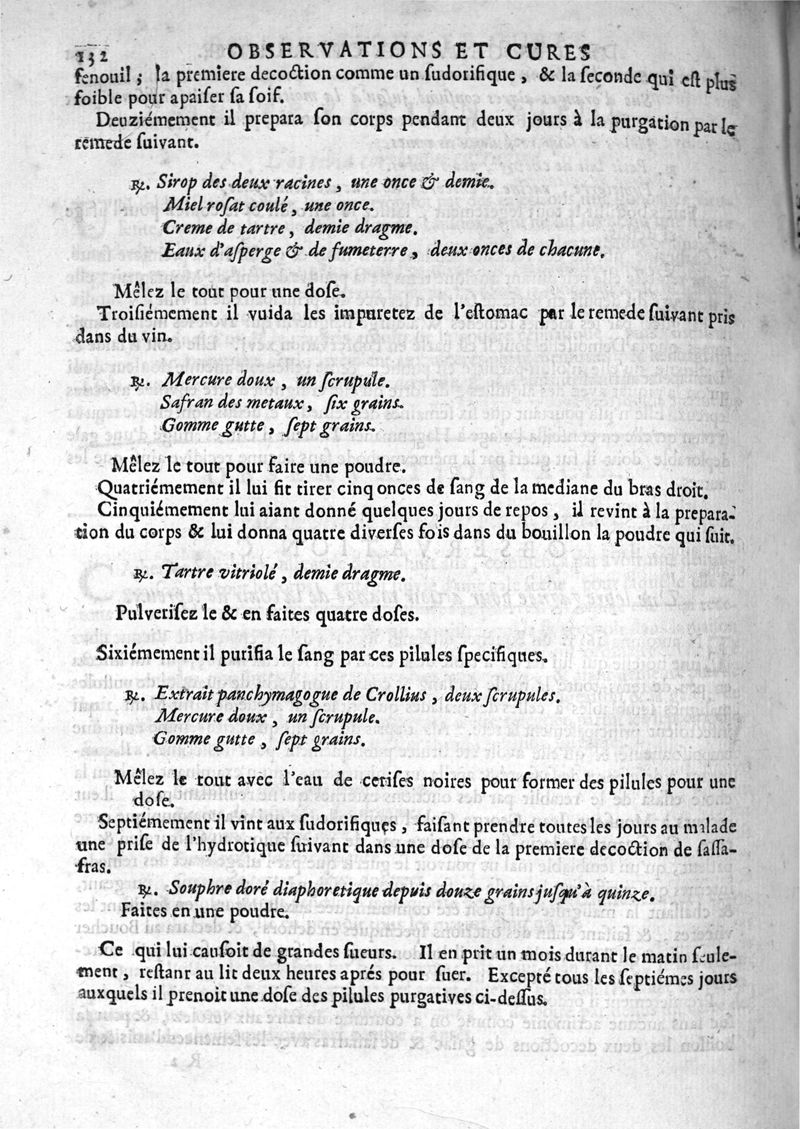 132 OBSERVATIONS ET CURES
fenouil; la premiere decoction comme un ſudorifique, & la ſeconde qui eſt plus
foible pour apaiſer ſa ſoif.
Deuziémement il prepara ſon corps pendant deux jours à la purgation par le
remede ſuivant.
℞. Sirop des deux racines, une once & demie.
Miel roſat coulé, une once.
Creme de tartre, demie dragme.
Eaux d'aſperge & de fumeterre, deux onces de chacune.
Mêlez le tout pour une doſe.
Troiſiémement il vuida les impuretez de l'eſtomac par le remede ſuivant pris
dans du vin.
℞. Mercure doux, un ſcrupule.
Safran des metaux, ſix grains.
Gomme gutte, ſept grains.
Mêlez le tout pour faire une poudre.
Quatriémement il lui fit tirer cinq onces de ſang de la mediane du bras droit.
Cinquiémement lui aiant donné quelques jours de repos, il revint à la prepara-
tion du corps & lui donna quatre diverſes fois dans du bouillon la poudre qui ſuit.
℞. Tartre vitriolé, demie dragme.
Pulveriſez le & en faites quatre doſes.
Sixiémement il purifia le ſang par ces pilules ſpecifiques.
℞. Extrait panchymagogue de Crollius, deux ſcrupules.
Mercure doux, un ſcrupule.
Gomme gutte, ſept grains.
Mêlez le tout avec l'eau de ceriſes noires pour former des pilules pour une
doſe.
Septiémement il vint aux ſudorifiques, faiſant prendre toutes les jours au malade
une priſe de l'hydrotique ſuivant dans une doſe de la premiere decoction de ſaſſa-
fras.
℞. Souphre doré diaphoretique depuis douze grains juſqu'à quinze.
Faites en une poudre.
Ce qui lui cauſoit de grandes ſueurs. Il en prit un mois durant le matin ſeule-
ment, reſtant au lit deux heures aprés pour ſuer. Excepté tous les ſeptiémes jours
auxquels il prenoit une doſe des pilules purgatives ci-deſſus.